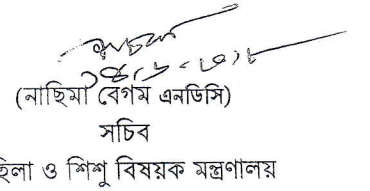 (নাছিমা বেগম এনডিসি)
সচিব
হিলা ও শিশু বিষয়ক মন্ত্রণালয়